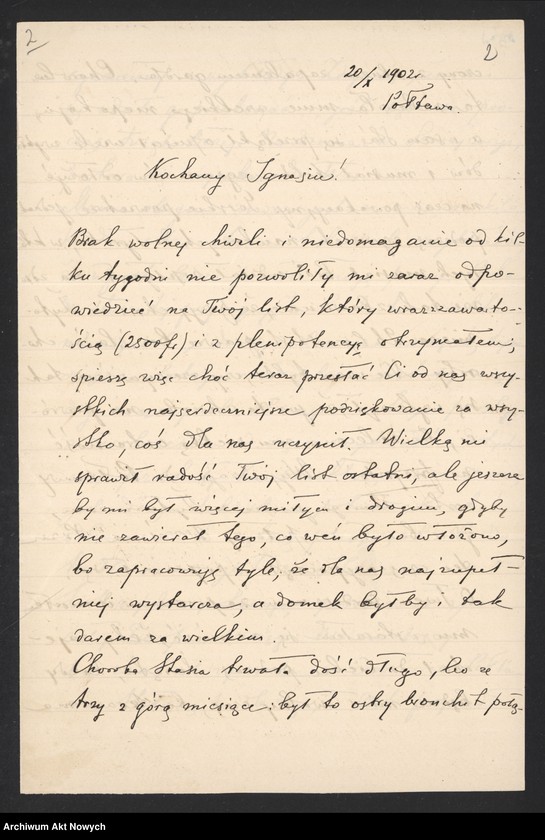 2
2
20/X 1902 r
Połtawa.
Kochany Ignasiu!
Brak wolnej chwili i niedomaganie od kil-
ku tygodni nie pozwoliły mi zaraz odpo-
wiedzieć na Twój list, który wraz z zawarto-
ścią (2500 fr) i z plenipotencyą otrzymałem,
śpieszę więc choć teraz przesłać Ci od nas wszy-
stkich najserdeczniejsze podziękowanie za wszy-
stko, coś dla nas uczynił. Wielką mi
sprawił radość Twój list ostatni, ale jeszcze
by mi był więcej miłym i drogim, gdyby
nie zawierał tego, co weń było włożono,
bo zapracowuję tyle, że dla nas najzupeł-
niej wystarcza, a domek byłby i tak
darem za wielkim.
Choroba Stasia trwała dość długo, bo ze
trzy z górą miesiące: był to ostry bronchit połą-
Archiwum Akt Nowych